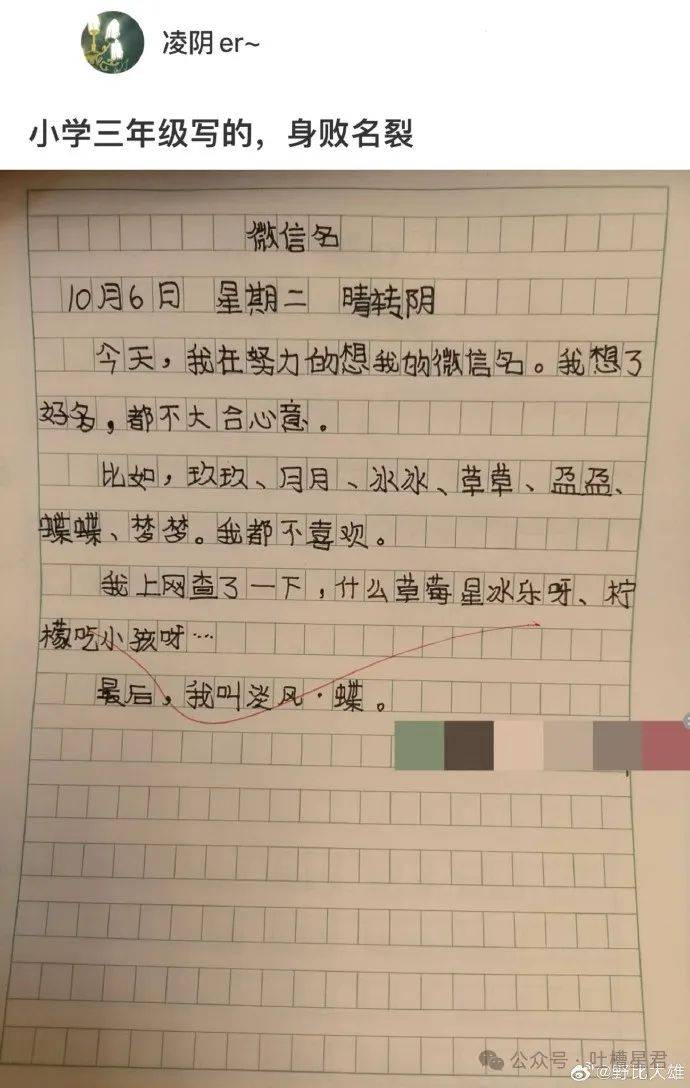 凌阴er~
小学三年级写的，身败名裂
微信名
10月6日 星期二 晴转阴
今天，我在努力的想我的微信名。我想了
好多，都不大合心意。
比如，玖玖、月月、冰冰、草草、盈盈、
蝶蝶、梦梦。我都不喜欢。
我上网查了一下，什么草莓星冰乐呀、柠
檬吃小孩呀…
最后，我叫淡风·蝶。
公众号·吐槽星君
@野比大雄